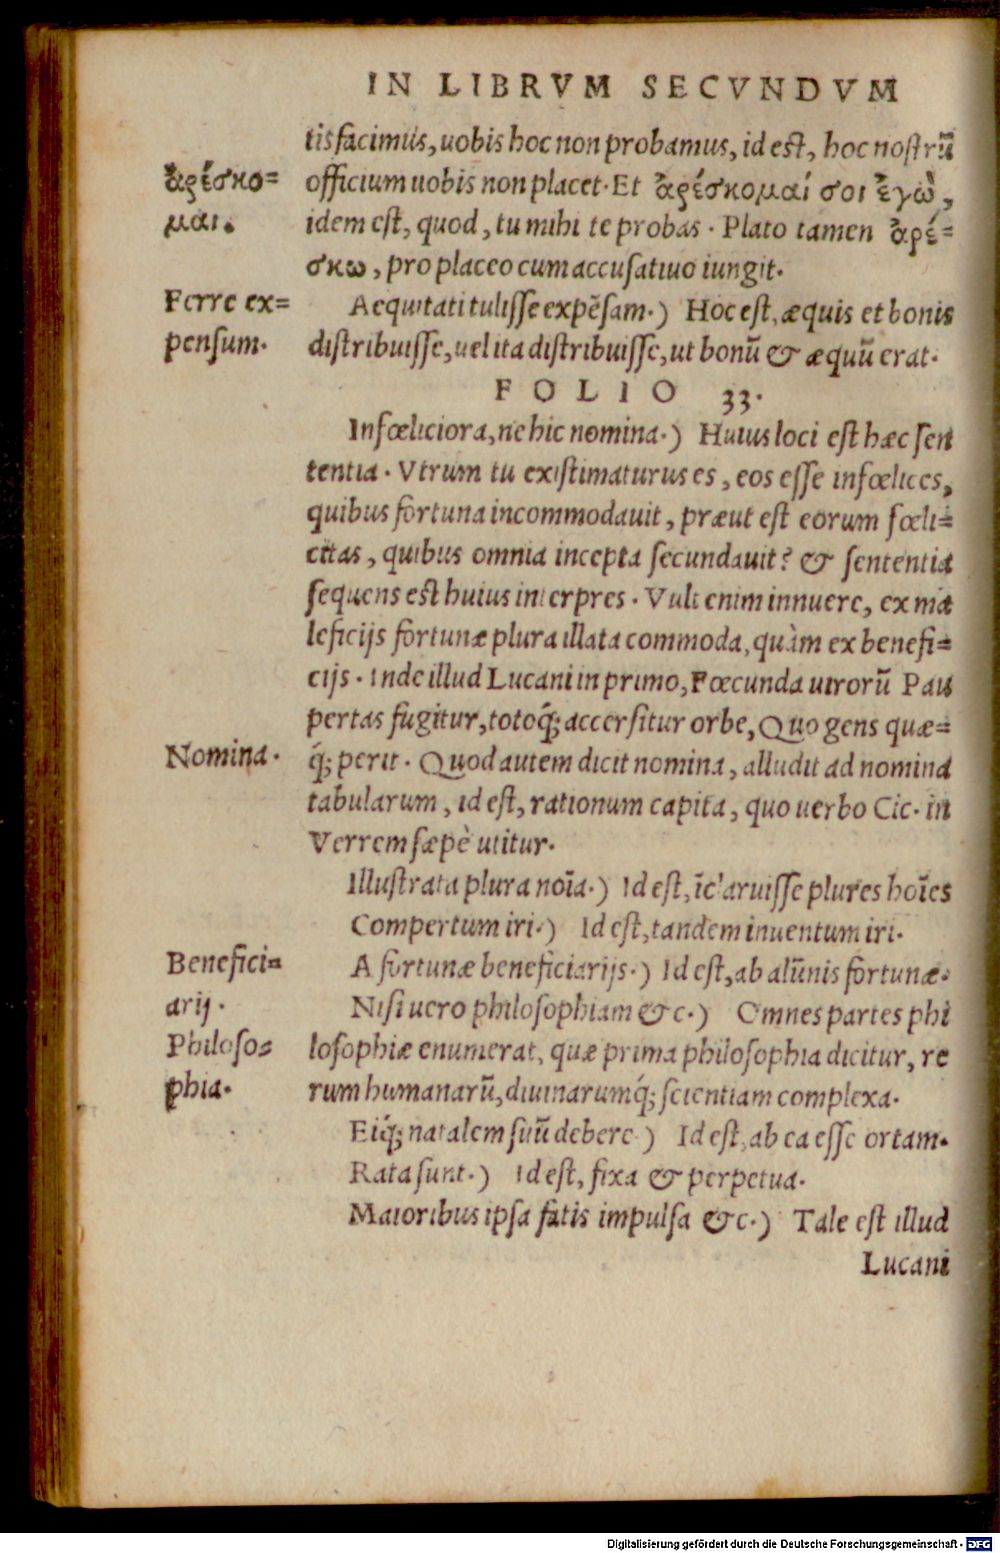 IN LIBRVM SECVNDVM
tisfacimus, uobis hoc non probamus, id est, hoc nostrũ
ἀρέσκο=
officium uobis non placet. Et ἀρέσκομαί σοι ἐγὼ,
μαι.
idem est, quod, tu mihi te probas. Plato tamen ἀρέ=
σκω, pro placeo cum accusatiuo iungit.
Ferre ex=
Aequitati tulisse expẽsam.) Hoc est, æquis et bonis
pensum.
distribuisse, uel ita distribuisse, ut bonũ & æquũ erat.
FOLIO 33.
Infœliciora, ne hic nomina.) Huius loci est hæc sen
tentia. Vtrum tu existimaturus es, eos esse infœlices,
quibus fortuna incommodauit, præut est eorum fœli=
citas, quibus omnia incepta secundauit? & sententia
sequens est huius interpres. Vult enim innuere, ex ma
leficijs fortunæ plura illata commoda, quàm ex benefi=
cijs. Inde illud Lucani in primo, Fœcunda uirorũ Pau
pertas fugitur, totoq́; accersitur orbe, Quo gens quæ=
Nomina.
q́; perit. Quod autem dicit nomina, alludit ad nomina
tabularum, id est, rationum capita, quo uerbo Cic. in
Verrem sæpè utitur.
Illustrata plura noĩa.) Id est, ĩclaruisse plures hoĩes
Compertum iri.) Id est, tandem inuentum iri.
Benefici=
A fortunæ beneficiarijs.) Id est, ab alũnis fortunæ.
arij.
Nisi uero philosophiam &c.) Omnes partes phi
Philoso=
losophiæ enumerat, quæ prima philosophia dicitur, re
phia.
rum humanarũ, diuinarumq́; scientiam complexa.
Eiq́; natalem suũ debere.) Id est, ab ea esse ortam.
Rata sunt.) Id est, fixa & perpetua.
Maioribus ipsa fatis impulsa &c.) Tale est illud
Lucani
Digitalisierung gefördert durch die Deutsche Forschungsgemeinschaft - DFG